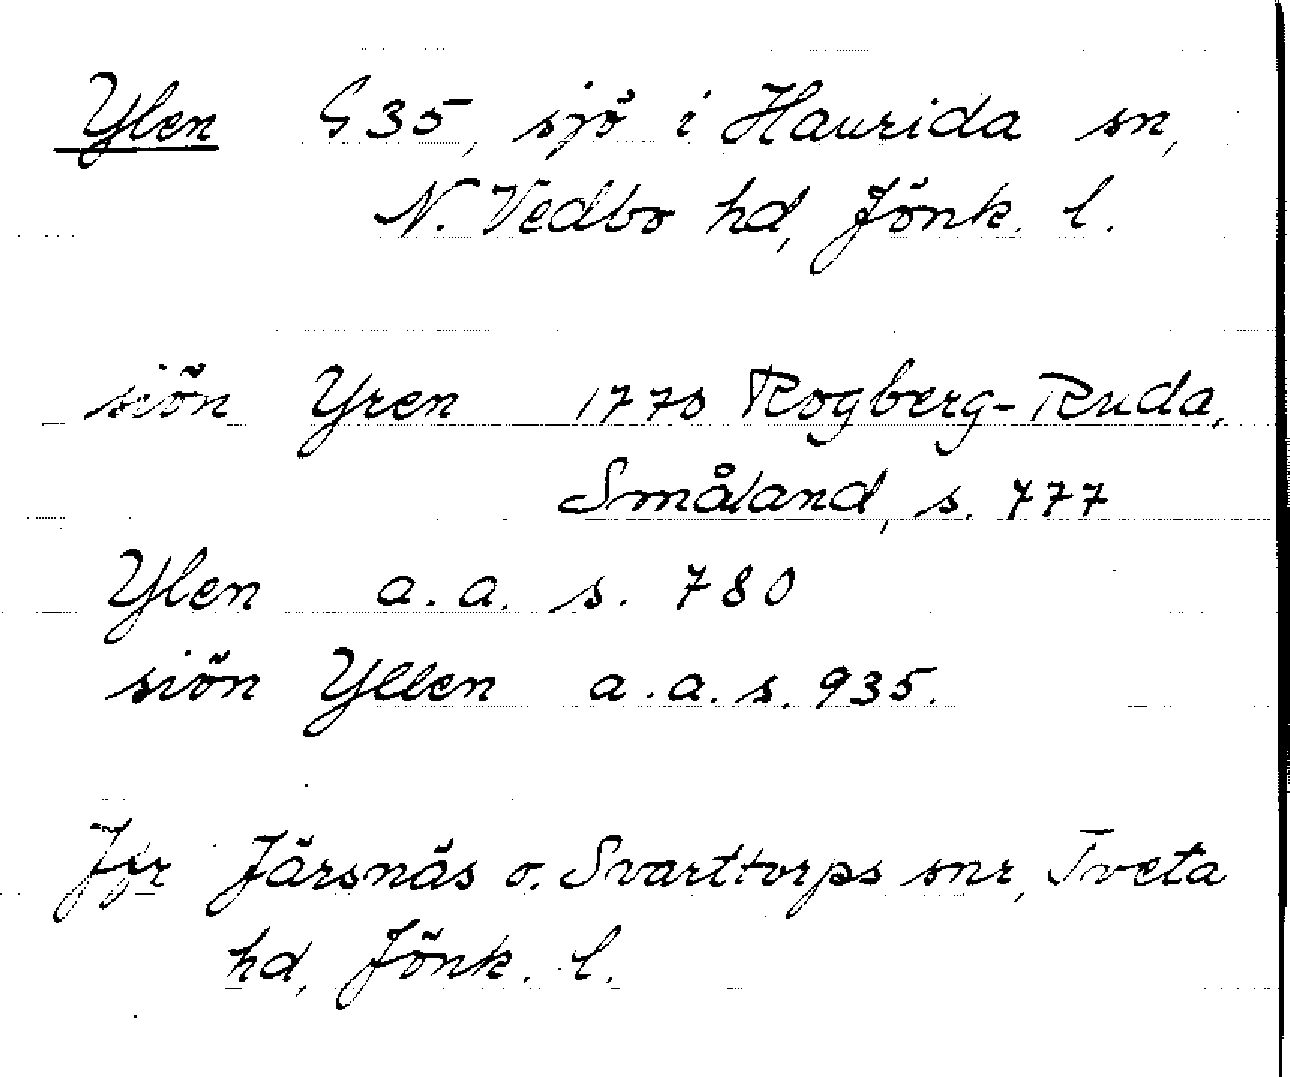 Ylen G 35, sjö i Haurida sn,
N. Vedbo hd, Jönk. l.
siön Yren 1770 Rogberg-Ruda,
Småland, s. 777
Ylen a.a. s. 780
siön Yllen a.a. s. 935.
Jfr Järsnäs o. Svarttorps snr, Tveta
hd, Jönk. l.